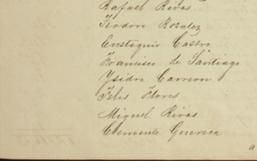 Rafael Rivas
Isodor Rosalez
Eustaquio Castro
Francisco de Santiago
Ysidro Carreon
Felis Flores
Miguel Rivas
Clemente Guerrera
a